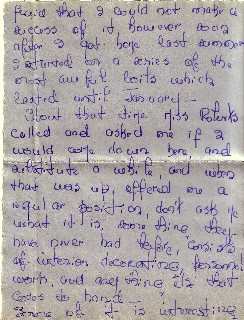 that I could not make a
success of it however soon
after I got here last summer
I started on a series of the
most awful boils which
lasted until January —
About that time Miss Roberts
called and asked me if I
would come down here, and
substitute a while, and when
that was up, offered me a
regular position, don't ask me
what it is, something they
have never had before, consists
of interior decorating, personnel
work, and anything else that
comes to hand —
Some of it is interesting